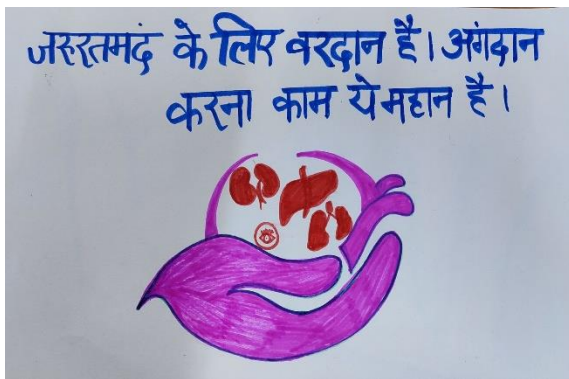 जरुरतमदं के लिए वरदान है। अंगदान
करना काम ये महान है।